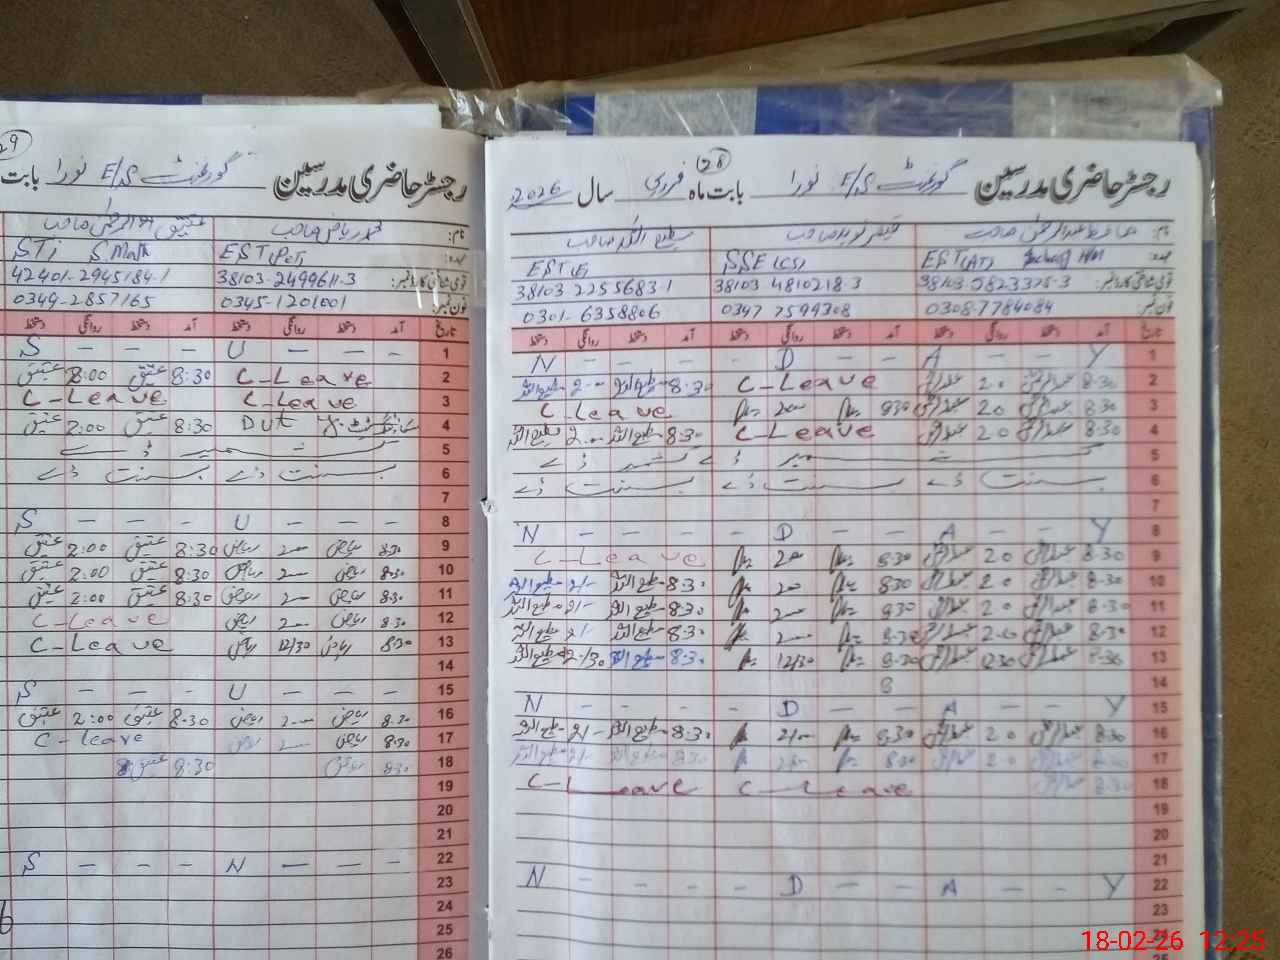 29
رجسٹر حاضری مدرسین گورنمنٹ E/S نورا بابت
نام: محمد ریاض صاحب عتیق الرحمٰن صاحب
عہدہ: EST(PET) STi S Math
قومی شناختی کارڈ نمبر: 38103-2499611-3 42401-2945184-1
فون نمبر: 0345-1201001 0349-2857165
تاریخ آمد دستخط روانگی دستخط آمد دستخط روانگی دستخط
1 S - - - U - - -
2 عتیق 8:00 عتیق 8:30 C-Leave
3 C-Leave C-Leave
4 عتیق 2:00 عتیق 8:30 Dut
5 کشمیر ڈے
6 بسنت ڈے بسنت ڈے
7
8 S - - - U - - -
9 عتیق 2:00 عتیق 8:30 ریاض 2 ریاض 8:30
10 عتیق 2:00 عتیق 8:30 ریاض 2 ریاض 8:30
11 عتیق 2:00 عتیق 8:30 ریاض 2 ریاض 8:30
12 C-Leave ریاض 2 ریاض 8:30
13 C-Leave ریاض 12/30 ریاض 8:30
14
15 S - - - U - - -
16 عتیق 2:00 عتیق 8:30 ریاض 2 ریاض 8:30
17 C-leave ریاض 2 ریاض 8:30
18 عتیق 8:30 ریاض 8:30
19
20
21
22 S - - - N - - -
23
24
25
26
28
رجسٹر حاضری مدرسین گورنمنٹ E/S نورا بابت ماہ فروری سال 2026
نام: حافظ عبدالرحمٰن صاحب قیصر نوید صاحب سمیع اللہ صاحب
عہدہ: EST(AT) SSE(CS) EST(E)
قومی شناختی کارڈ نمبر: 38103-5823325-3 38103 4810218-3 38103 2255683-1
فون نمبر: 0308-7784084 0347 7599308 0301-6358806
تاریخ آمد دستخط روانگی دستخط آمد دستخط روانگی دستخط آمد دستخط روانگی دستخط
1 N - - - - D - - A - - Y
2 سمیع اللہ 2 سمیع اللہ 8:30 C-Leave عبدالرحمٰن 2.0 عبدالرحمٰن 8-30
3 C-Leave 200 830 عبدالرحمٰن 20 عبدالرحمٰن 8-30
4 سمیع اللہ 2 سمیع اللہ 8:30 C-Leave عبدالرحمٰن 20 عبدالرحمٰن 8-30
5 کشمیر ڈے کشمیر ڈے
6 بسنت ڈے بسنت ڈے بسنت ڈے
7
8 N - - - - D - - A - - Y
9 C-Leave 200 8:30 عبدالرحمٰن 20 عبدالرحمٰن 8-30
10 سمیع اللہ 2/- سمیع اللہ 8:30 200 830 عبدالرحمٰن 2.0 عبدالرحمٰن 8-30
11 سمیع اللہ 2/- سمیع اللہ 8:30 830 عبدالرحمٰن 2.0 عبدالرحمٰن 8-30
12 سمیع اللہ 2/- سمیع اللہ 8:30 8:30 عبدالرحمٰن 2.0 عبدالرحمٰن 8-30
13 سمیع اللہ سمیع اللہ 8:30 12/30 8:30 عبدالرحمٰن 1230 عبدالرحمٰن 8-30
14 8
15 N - - - - D - - A - - Y
16 سمیع اللہ 2/- سمیع اللہ 8:30 2/00 8:30 عبدالرحمٰن 2.0 عبدالرحمٰن 8-30
17 سمیع اللہ 2/- سمیع اللہ 8:30 8:30 عبدالرحمٰن 2.0 عبدالرحمٰن
18 C-Leave C-Leave عبدالرحمٰن 8-30
19
20
21
22 N - - - - D - - A - - Y
23
24
25
18-02-26 12:25